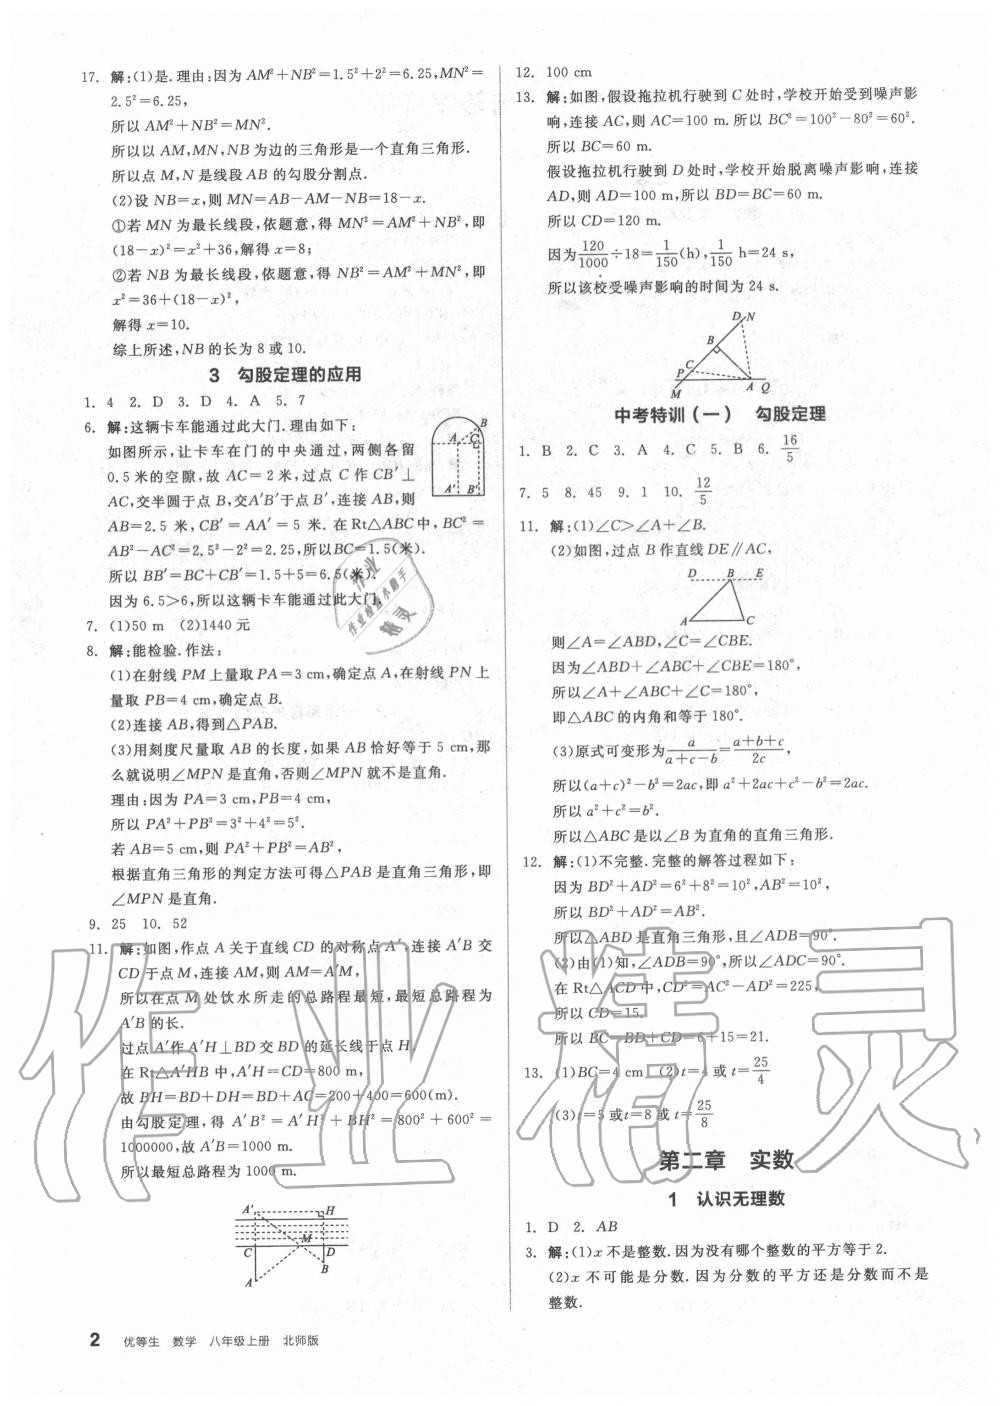 17. 解:(1)是.理由:因为 AM²+NB²=1.5²+2²=6.25,MN²=
2.5²=6.25,
所以 AM²+NB²=MN².
所以以 AM,MN,NB 为边的三角形是一个直角三角形.
所以点 M,N 是线段 AB 的勾股分割点.
(2)设 NB=x,则 MN=AB-AM-NB=18-x.
①若 MN 为最长线段,依题意,得 MN²=AM²+NB²,即
(18-x)²=x²+36,解得 x=8;
②若 NB 为最长线段,依题意,得 NB²=AM²+MN²,即
x²=36+(18-x)²,
解得 x=10.
综上所述,NB 的长为 8 或 10.
3 勾股定理的应用
1. 4 2. D 3. D 4. A 5. 7
6. 解:这辆卡车能通过此大门.理由如下:
如图所示,让卡车在门的中央通过,两侧各留
0.5 米的空隙,故 AC=2 米,过点 C 作 CB′⊥
AC,交半圆于点 B,交A′B′于点 B′,连接 AB,则
AB=2.5 米,CB′=AA′=5 米. 在 Rt△ABC 中,BC²=
AB²-AC²=2.5²-2²=2.25,所以BC=1.5(米).
所以 BB′=BC+CB′=1.5+5=6.5(米).
因为 6.5>6,所以这辆卡车能通过此大门.
A B C A′ B′
7. (1)50 m (2)1440 元
8. 解:能检验.作法:
(1)在射线 PM 上量取 PA=3 cm,确定点 A,在射线 PN 上
量取 PB=4 cm,确定点 B.
(2)连接 AB,得到△PAB.
(3)用刻度尺量取 AB 的长度,如果 AB 恰好等于 5 cm,那
么就说明∠MPN 是直角,否则∠MPN 就不是直角.
理由:因为 PA=3 cm,PB=4 cm,
所以 PA²+PB²=3²+4²=5².
若 AB=5 cm,则 PA²+PB²=AB²,
根据直角三角形的判定方法可得△PAB 是直角三角形,即
∠MPN 是直角.
9. 25 10. 52
11. 解:如图,作点 A 关于直线 CD 的对称点 A′,连接 A′B 交
CD 于点 M,连接 AM,则 AM=A′M,
所以在点 M 处饮水所走的总路程最短,最短总路程为
A′B 的长.
过点 A′作 A′H⊥BD 交 BD 的延长线于点 H.
在 Rt△A′HB 中,A′H=CD=800 m,
故 BH=BD+DH=BD+AC=200+400=600(m).
由勾股定理,得 A′B²=A′H²+BH²=800²+600²=
1000000,故 A′B=1000 m.
所以最短总路程为 1000 m.
A′ H
C M D
B
A
12. 100 cm
13. 解:如图,假设拖拉机行驶到 C 处时,学校开始受到噪声影
响,连接 AC,则 AC=100 m. 所以 BC²=100²-80²=60².
所以 BC=60 m.
假设拖拉机行驶到 D 处时,学校开始脱离噪声影响,连接
AD,则 AD=100 m,所以 BD=BC=60 m.
所以 CD=120 m.
因为120/1000÷18=1/150(h),1/150 h=24 s,
所以该校受噪声影响的时间为 24 s.
D N
B
P C
M A Q
中考特训(一) 勾股定理
1. B 2. C 3. A 4. C 5. B 6. 16/5
7. 5 8. 45 9. 1 10. 12/5
11. 解:(1)∠C>∠A+∠B.
(2)如图,过点 B 作直线 DE∥AC,
D B E
A C
则∠A=∠ABD,∠C=∠CBE.
因为∠ABD+∠ABC+∠CBE=180°,
所以∠A+∠ABC+∠C=180°,
即△ABC 的内角和等于 180°.
(3)原式可变形为a/(a+c-b)=(a+b+c)/2c,
所以(a+c)²-b²=2ac,即 a²+2ac+c²-b²=2ac.
所以 a²+c²=b².
所以△ABC 是以∠B 为直角的直角三角形.
12. 解:(1)不完整.完整的解答过程如下:
因为 BD²+AD²=6²+8²=10²,AB²=10²,
所以 BD²+AD²=AB².
所以△ABD 是直角三角形,且∠ADB=90°.
(2)由(1)知,∠ADB=90°,所以∠ADC=90°.
在 Rt△ACD 中,CD²=AC²-AD²=225,
所以 CD=15.
所以 BC=BD+CD=6+15=21.
13. (1)BC=4 cm (2)t=4 或 t=25/4
(3)t=5 或t=8 或 t=25/8
第二章 实数
1 认识无理数
1. D 2. AB
3. 解:(1)x 不是整数.因为没有哪个整数的平方等于 2.
(2)x 不可能是分数. 因为分数的平方还是分数而不是
整数.
2 优等生 数学 八年级上册 北师版
作业精灵
作业
作业检查小助手
精灵